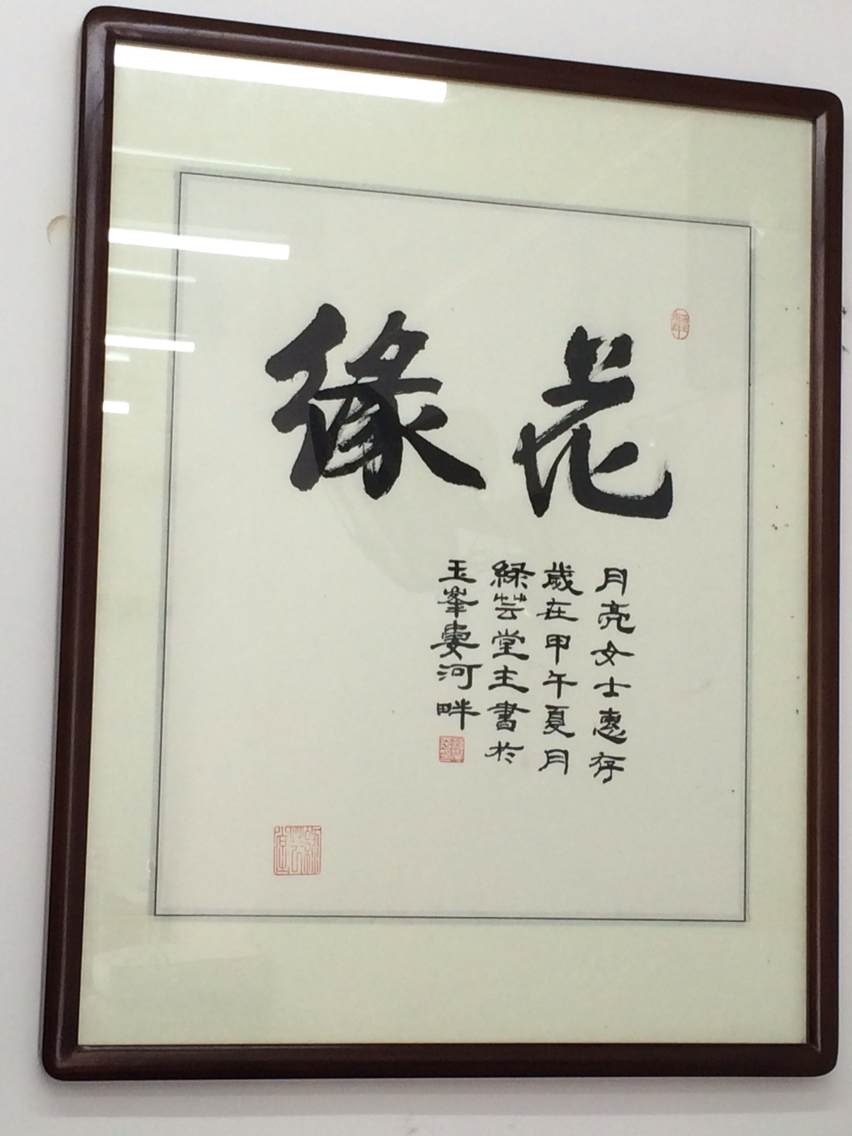 花緣
月亮女士惠存
歲在甲午夏月
緑芸堂主書於
玉峯婁河畔